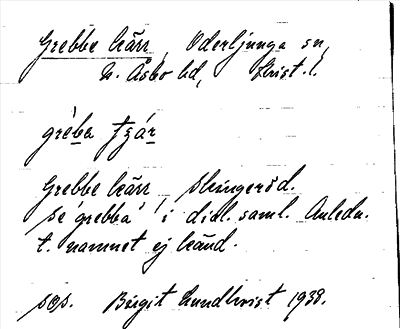 Grebbe kärr, Oderljunga sn,
N. Åsbo hd, Krist. l.
gréba tʒár
Grebbe kärr, Skingeröd.
se 'grebba' i dial. saml. Anledn.
t. namnet ej känd.
sos. Birgit Lundkvist 1938.